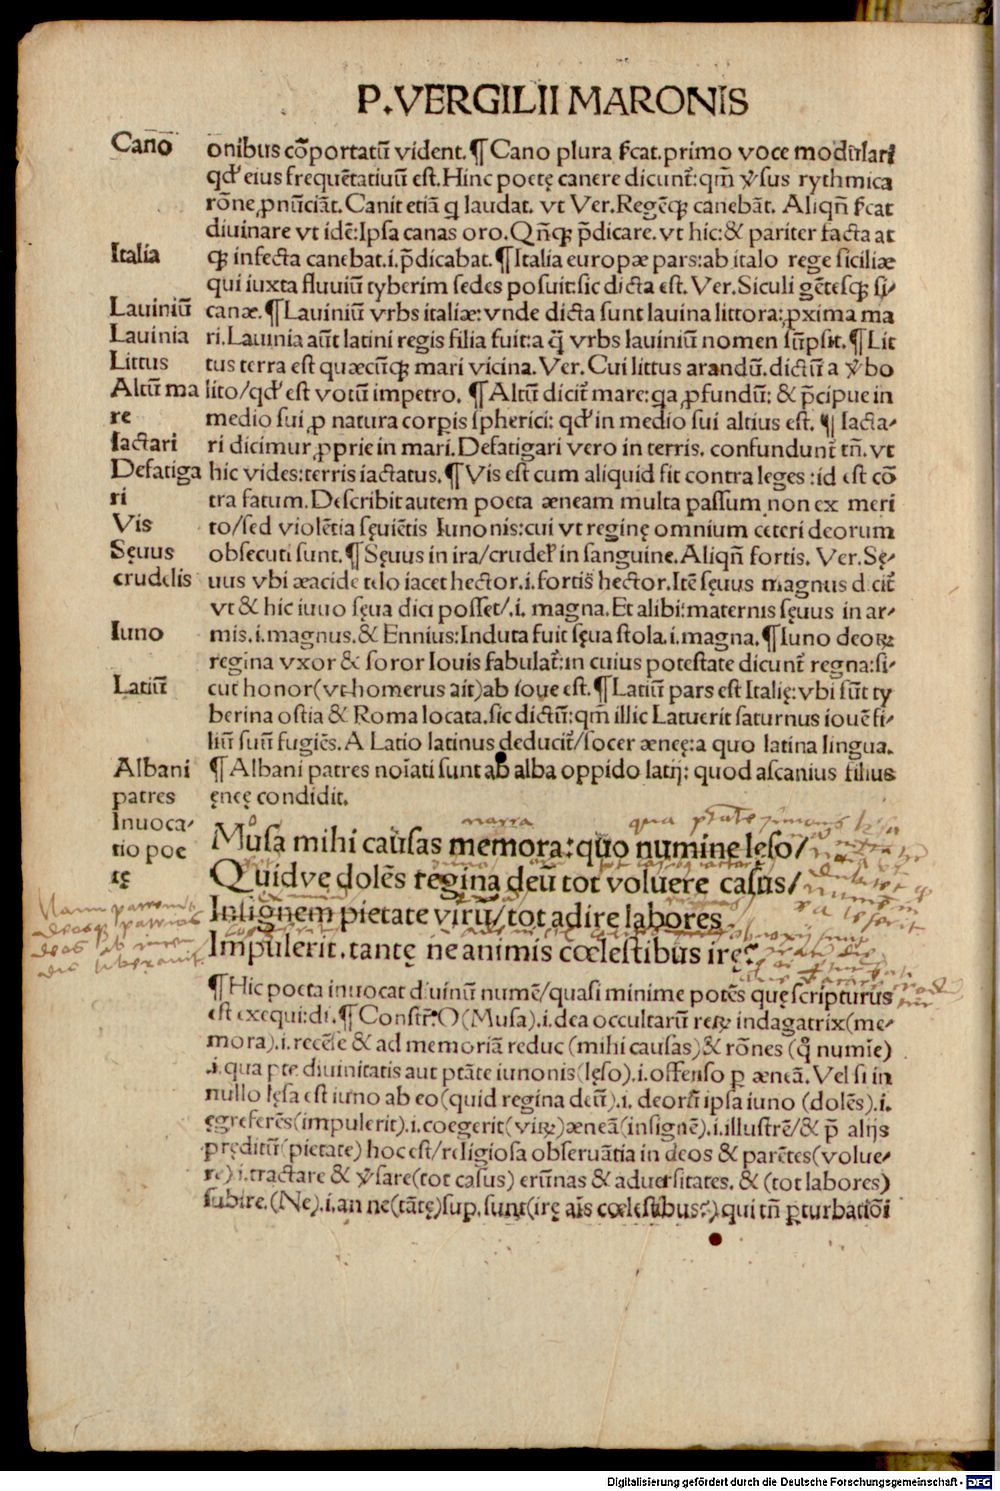 P.VERGILII MARONIS
Cano
onibus cōportatū vident.¶ Cano plura ſ̄cat.primo voce modulari
qd' eius frequētatiuū eſt.Hinc poetę canere dicunt̄:qm̄ ꝟſus rythmica
rōne,ꝓnūciāt.Canit etiā q̨ laudat. vt Ver.Regēq̨ꝫ canebāt. Aliqn̄ ſ̄cat
diuinare vt idē:Ipſa canas oro.Qn̄q̨ꝫ p̄dicare.vt hic:& pariter facta at
Italia
q̨ꝫ infecta canebat.i.p̄dicabat.¶Italia europæ pars:ab italo rege ſiciliæ
qui iuxta fluuiū tyberim ſedes poſuit:ſic dicta eſt. Ver.Siculi gētesq̨ꝫ ſi-
Lauiniū
canæ.¶Lauiniū vrbs italiæ:vnde dicta ſunt lauina littora:ꝓxima ma
Lauinia
ri.Lauinia aūt latini regis filia fuit:a q̄ vrbs lauiniū nomen ſūpſit.¶Lit
Littus
tus terra eſt quæcūq̨ꝫ mari vicina.Ver.Cui littus arandū.dictū a ꝟbo
Altū ma
lito/qd' eſt votū impetro. ¶Altū dicit̄ mare:q̨a ꝓfundū: & p̄cipue in
re
medio ſui ꝓ natura corꝑis ſpherici: qd' in medio ſui altius eſt. ¶ Iacta-
Iactari
ri dicimur ꝓprie in mari.Defatigari vero in terris. confundunt̄ tn̄. vt
Defatiga
hic vides:terris iactatus.¶Vis eſt cum aliquid fit contra leges :id eſt cō
ri
tra fatum.Deſcribit autem poeta æneam multa paſſum non ex meri
Vis
to/ſed violētia ſęuiētis Iunonis:cui vt reginę omnium ceteri deorum
Sęuus
obſecuti ſunt.¶Sęuus in ira/crudel' in ſanguine.Aliqn̄ fortis. Ver.Sę-
crudelis
uus vbi æacide telo iacet hector.i.fortis hector.Itē ſęuus magnus dicit̄
vt & hic iuno ſęua dici poſſet/.i. magna.Et alibi:maternis ſęuus in ar-
Iuno
mis.i.magnus.& Ennius:Induta fuit ſęua ſtola.i.magna.¶Iuno deoꝝ
regina vxor & ſoror Iouis fabulat̄:in cuius poteſtate dicunt̄ regna:ſi-
Latiū
cut honor(vt homerus ait)ab ioue eſt.¶Latiū pars eſt Italię:vbi ſūt ty
berina oſtia & Roma locata.ſic dictū:qm̄ illic Latuerit ſaturnus iouē fi-
liū ſuū fugiēs. A Latio latinus deducit̄/ſocer æneę:a quo latina lingua.
Albani
¶ Albani patres noīati ſunt ab alba oppido latij: quod aſcanius filius
patres
ęneę condidit.
Inuoca-
Muſa mihi cauſas memora:quo numine lęſo/
tio poe
tę
Quidve dolēs regina deū tot voluere caſus/
Inſignem pietate virū/tot adire labores
Impulerit.tantę ne animis cœleſtibus irę?
¶Hic poeta inuocat diuinū numē/quaſi minime potēs quę ſcripturus
eſt exequi:di.¶Conſtr̄:O(Muſa).i.dea occultarū reꝝ indagatrix(me-
mora).i.recēſe & ad memoriā reduc(mihi cauſas)& rōnes (q̊ numīe)
.i.qua pte diuinitatis aut ptāte iunonis(lęſo).i.offenſo ꝑ æneā.Vel ſi in
nullo lęſa eſt iuno ab eo(quid regina deū).i. deorū ipſa iuno (dolēs).i.
ęgreferēs(impulerit).i.coegerit(viꝝ)æneā(inſignē).i.illuſtrē/& p̄ alijs
pręditū(pietate) hoc eſt/religioſa obſeruātia in deos & parētes(volue-
re).i.tractare & ꝟſare(tot caſus) erūnas & aduerſitates. & (tot labores)
ſubire.(Ne).i.an ne(tātę)ſup.ſunt(irę aīs cœleſtibus?) qui tn̄ ꝑturbatiōi
Digitalisierung gefördert durch die Deutsche Forschungsgemeinschaft - DFG